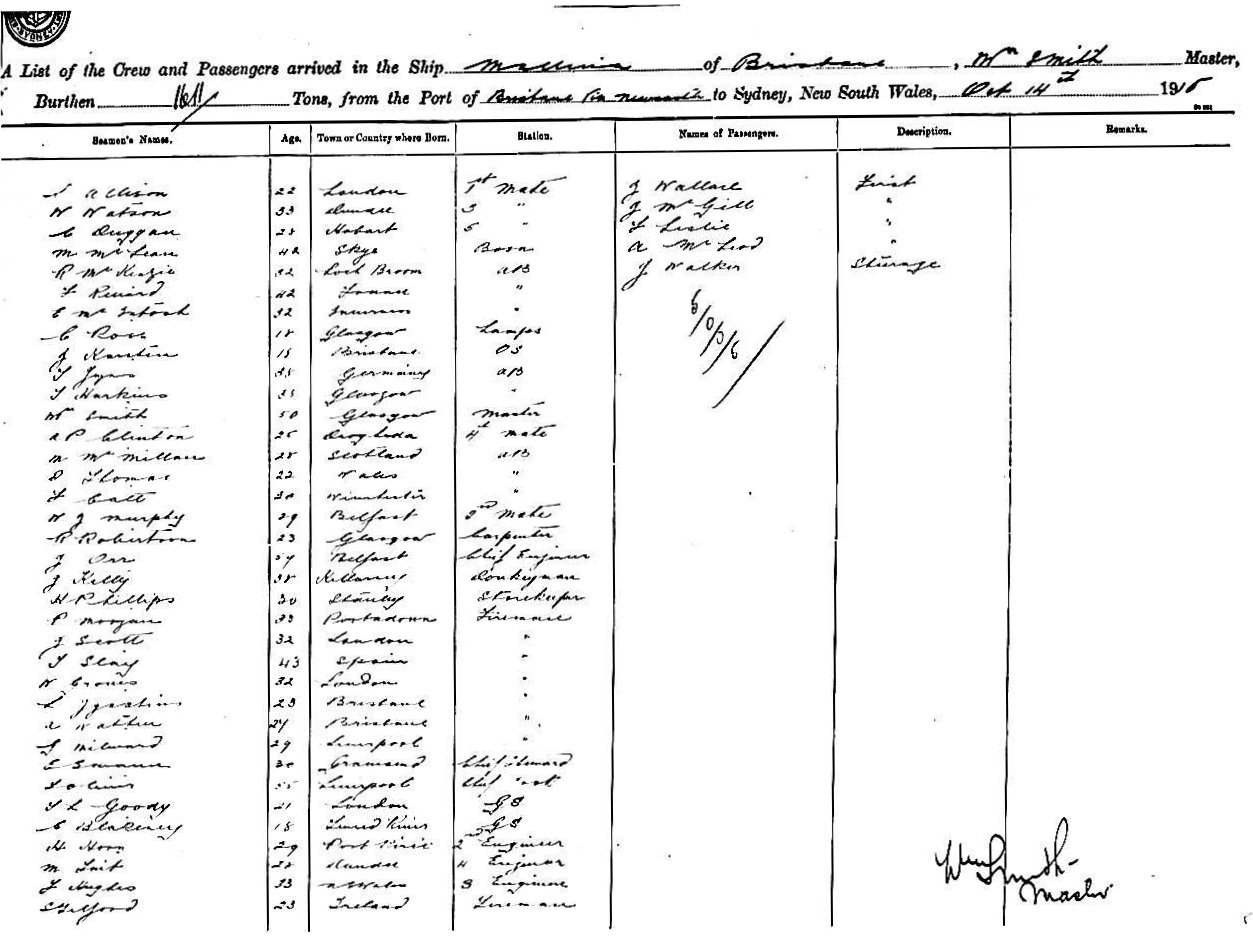 SYDNEY
A List of the Crew and Passengers arrived in the Ship of Brisbane, Wm Smith Master,
Burthen 1611 Tons, from the Port of Brisbane via Newcastle to Sydney, New South Wales, Oct 14th 191
Seamen's Names. Age. Town or Country where Born. Station. Names of Passengers. Description. Remarks.
Allison 22 London 1st Mate J Wallace First
W Watson 33 Dundee 3 " J McGill "
C Duggan 28 Hobart 5 " F Leslie "
M McLean 42 Skye Bosn A McLeod "
R McKenzie 32 Loch Broom AB J Walker Steerage
F 42 "
C McIntosh 32 Inverness "
C Ross 18 Glasgow Lamps
J 18 Brisbane OS
38 Germany AB
T Harkins 35 Glasgow "
Wm Smith 50 Glasgow Master
A P Clinton 25 Drogheda 4th Mate
M McMillan 28 Scotland AB
D Thomas 22 Wales "
F Catt 30 Winchester "
W J Murphy 29 Belfast 2nd Mate
R Robertson 23 Glasgow Carpenter
J Orr 54 Belfast Chief Engineer
J Kelly 38 Killarney Donkeyman
H Phillips 30 Stanley Storekeeper
P Morgan 33 Portadown Fireman
J Scott 32 London "
T 43 Spain "
W Groves 32 London "
L 23 Brisbane "
A 24 Brisbane "
G Milward 29 Liverpool "
E 30 Gravesend Chief Steward
55 Liverpool Chief Cook
T L Goody 21 London GS
C Blakeney 18 GS
H Horn 29 Port Pirie 2nd Engineer
M Tait 28 Dundee 4 Engineer
F Hughes 33 N Wales 3 Engineer
23 Ireland Fireman
5/0/0/6
Wm Smith
Master